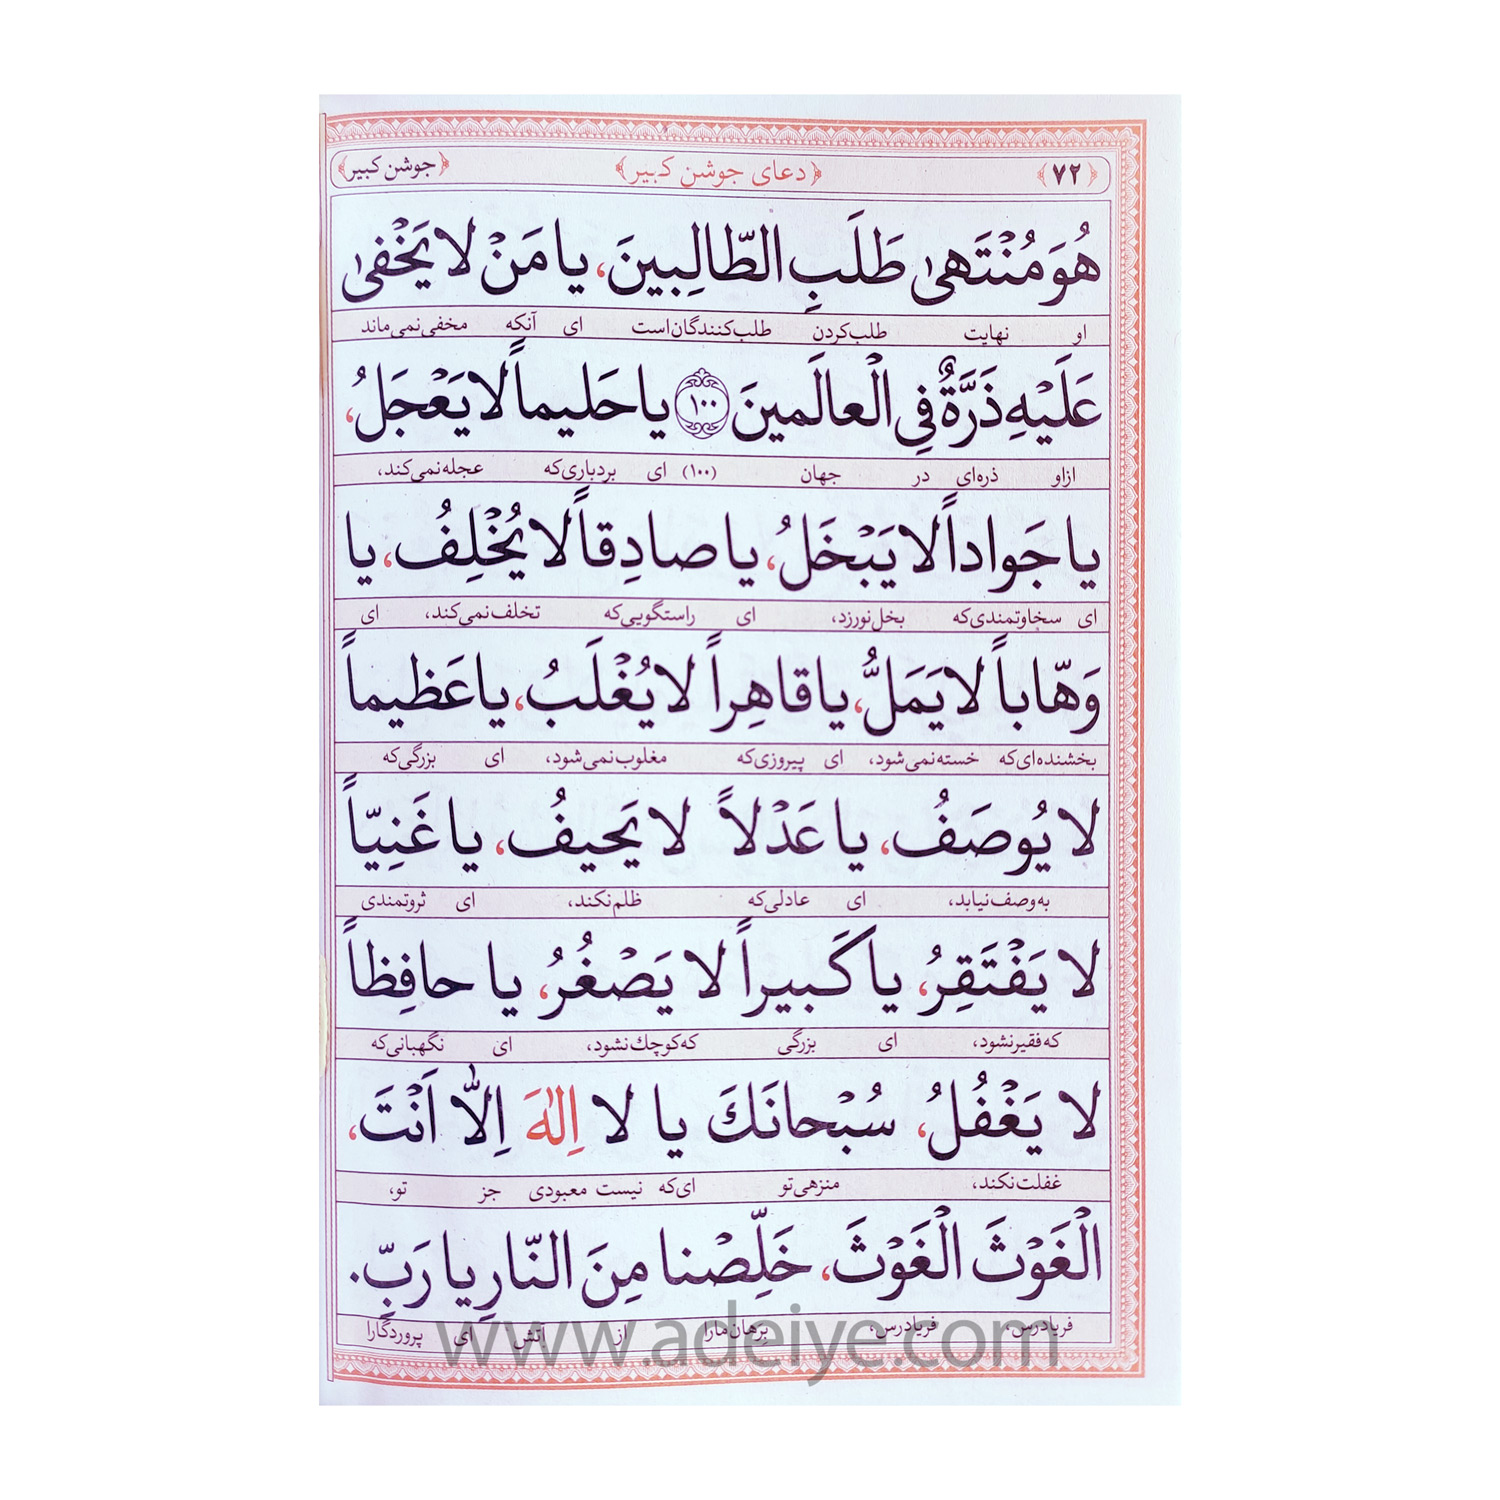 ﴿۷۲﴾ ﴿دعای جوشن کبیر﴾ ﴿جوشن کبیر﴾
هُوَ مُنْتَهىٰ طَلَبِ الطّالِبينَ، يا مَنْ لا يَخْفىٰ
او نهایت طلب‌کردن طلب‌کنندگان‌است ای آنکه مخفی‌نمی‌ماند
عَلَيْهِ ذَرَّةٌ فِي الْعالَمينَ ﴿۱۰۰﴾ يا حَليماً لا يَعْجَلُ،
ازاو ذره‌ای در جهان (۱۰۰) ای بردباری‌که عجله‌نمی‌کند،
يا جَواداً لا يَبْخَلُ، يا صادِقاً لا يُخْلِفُ، يا
ای سخاوتمندی‌که بخل‌نورزد، ای راستگویی‌که تخلف‌نمی‌کند، ای
وَهّاباً لا يَمَلُّ، يا قاهِراً لا يُغْلَبُ، يا عَظيماً
بخشنده‌ای‌که خسته‌نمی‌شود، ای پیروزی‌که مغلوب‌نمی‌شود، ای بزرگی‌که
لا يُوصَفُ، يا عَدْلاً لا يَحيفُ، يا غَنِيّاً
به‌وصف‌نیابد، ای عادلی‌که ظلم‌نکند، ای ثروتمندی
لا يَفْتَقِرُ، يا كَبيراً لا يَصْغُرُ، يا حافِظاً
که‌فقیرنشود، ای بزرگی که‌کوچك‌نشود، ای نگهبانی‌که
لا يَغْفُلُ، سُبْحانَكَ يا لا اِلٰهَ اِلّا اَنْتَ،
غفلت‌نکند، منزهی‌تو ای‌که نیست معبودی جز تو،
الْغَوْثَ الْغَوْثَ، خَلِّصْنا مِنَ النّارِ يا رَبِّ.
فریادرس، فریادرس، برهان‌مارا از آتش ای پروردگارا
www.adeiye.com